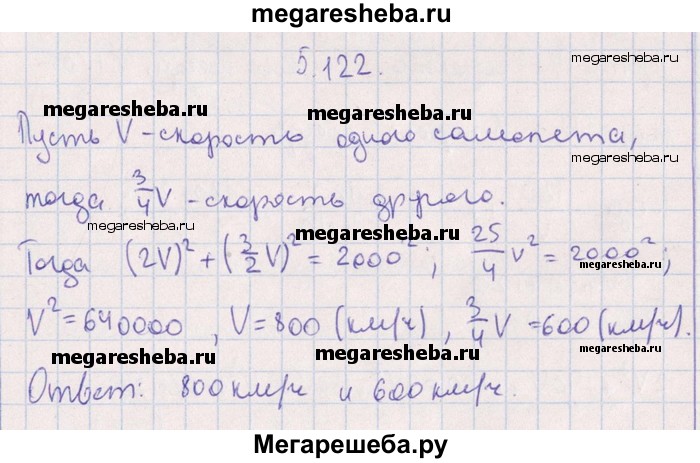 megaresheba.ru
5.122.
megaresheba.ru
megaresheba.ru megaresheba.ru
Пусть V - скорость одного самолета,
megaresheba.ru
тогда 3/4 V - скорость другого.
megaresheba.ru megaresheba.ru
Тогда (2V)² + (3/2 V)² = 2000²; 25/4 V² = 2000²;
megaresheba.ru
V² = 640000, V = 800 (км/ч), 3/4 V = 600 (км/ч).
megaresheba.ru megaresheba.ru
megaresheba.ru
Ответ: 800 км/ч и 600 км/ч.
Мегарешеба.ру